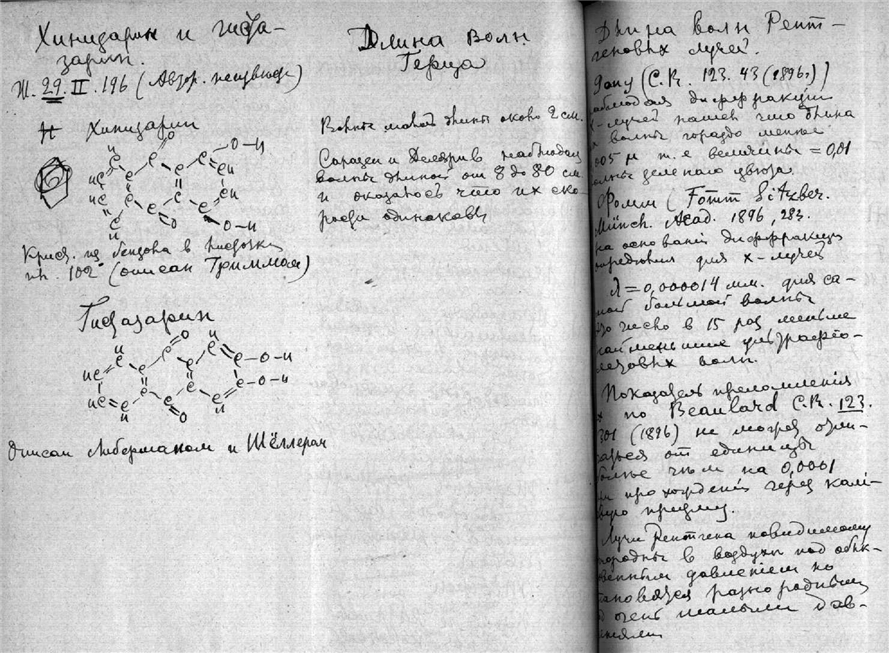 Хинизарин и гиста-
зарин.
Ж. 29. II. 196 (Автор. неизвестн)
Хинизарин
Крист. из бензола в
пл. 192° (описан Гриммом)
Гистазарин
Описан Либерманом и Шёллером
Длина волн
Герца
длины около 2 см.
Саразен и Деларив наблюдали
волны длиной от 8 до 80 см
и оказалось что их ско-
рости одинаковы
Длина волн Рент-
геновых лучей.
Гану (C. R. 123. 43 (1896))
наблюдая диффракцию
X-лучей нашел что длина
волны гораздо менее
005 μ т. е. величины = 0,01
волны зеленого цвета.
Фомм (Fomm Sitzber.
Münch. Acad. 1896, 283.
на основании диффракции
для x-лучей
λ = 0,000014 мм. для са-
мой большой волны
это число в 15 раз меньше
наименьшие ультрафио-
летовых волн.
Показатель преломления
по Beaulard C. R. 123.
301 (1896) не могут отли-
чаться от единицы
больше чем на 0,0001
при прохождении через
призму.
Лучи Рентгена повидимому
в воздухе под обык-
новенным давлением но
становятся разнородными
очень малыми дав-
лениями